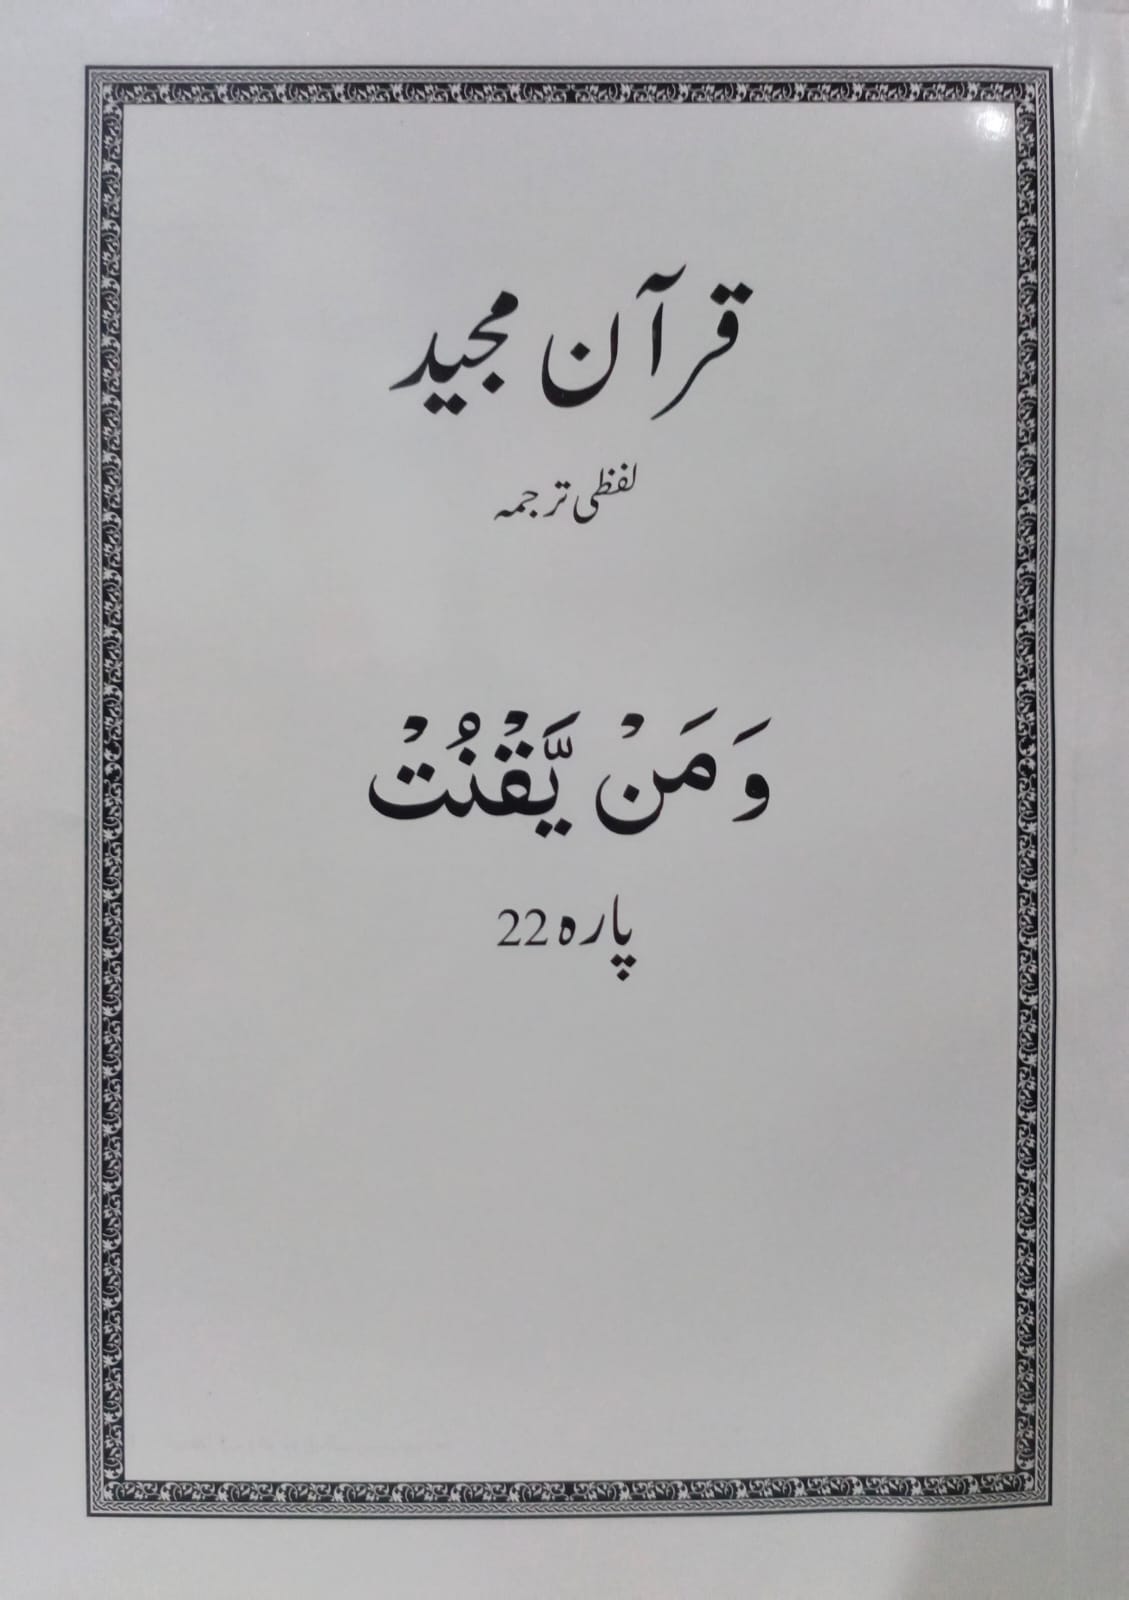 قرآن مجید
لفظی ترجمہ
وَمَنْ يَّقْنُتْ
پارہ 22